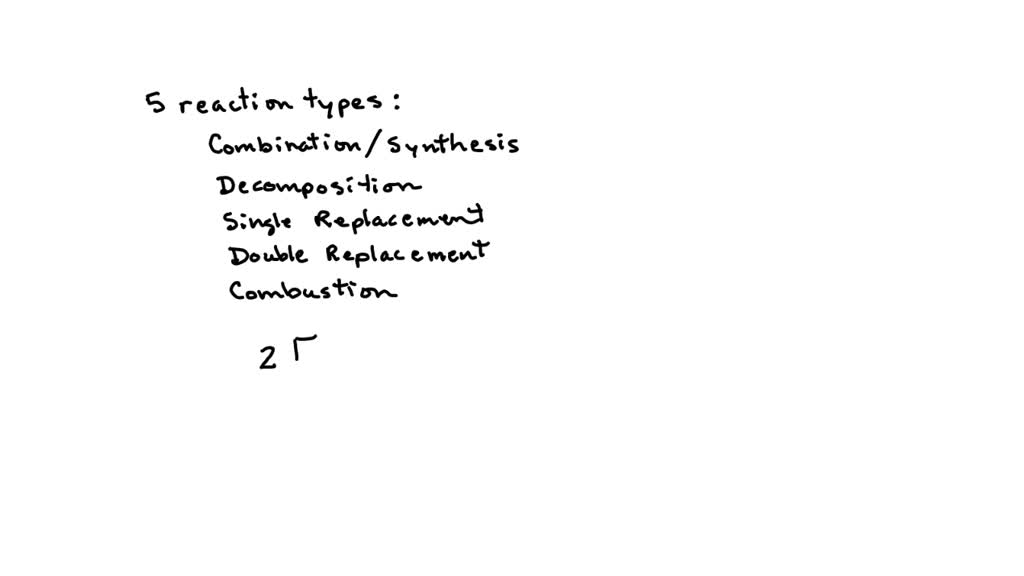 5 reaction types:
Combination/Synthesis
Decomposition
Single Replacement
Double Replacement
Combustion
2